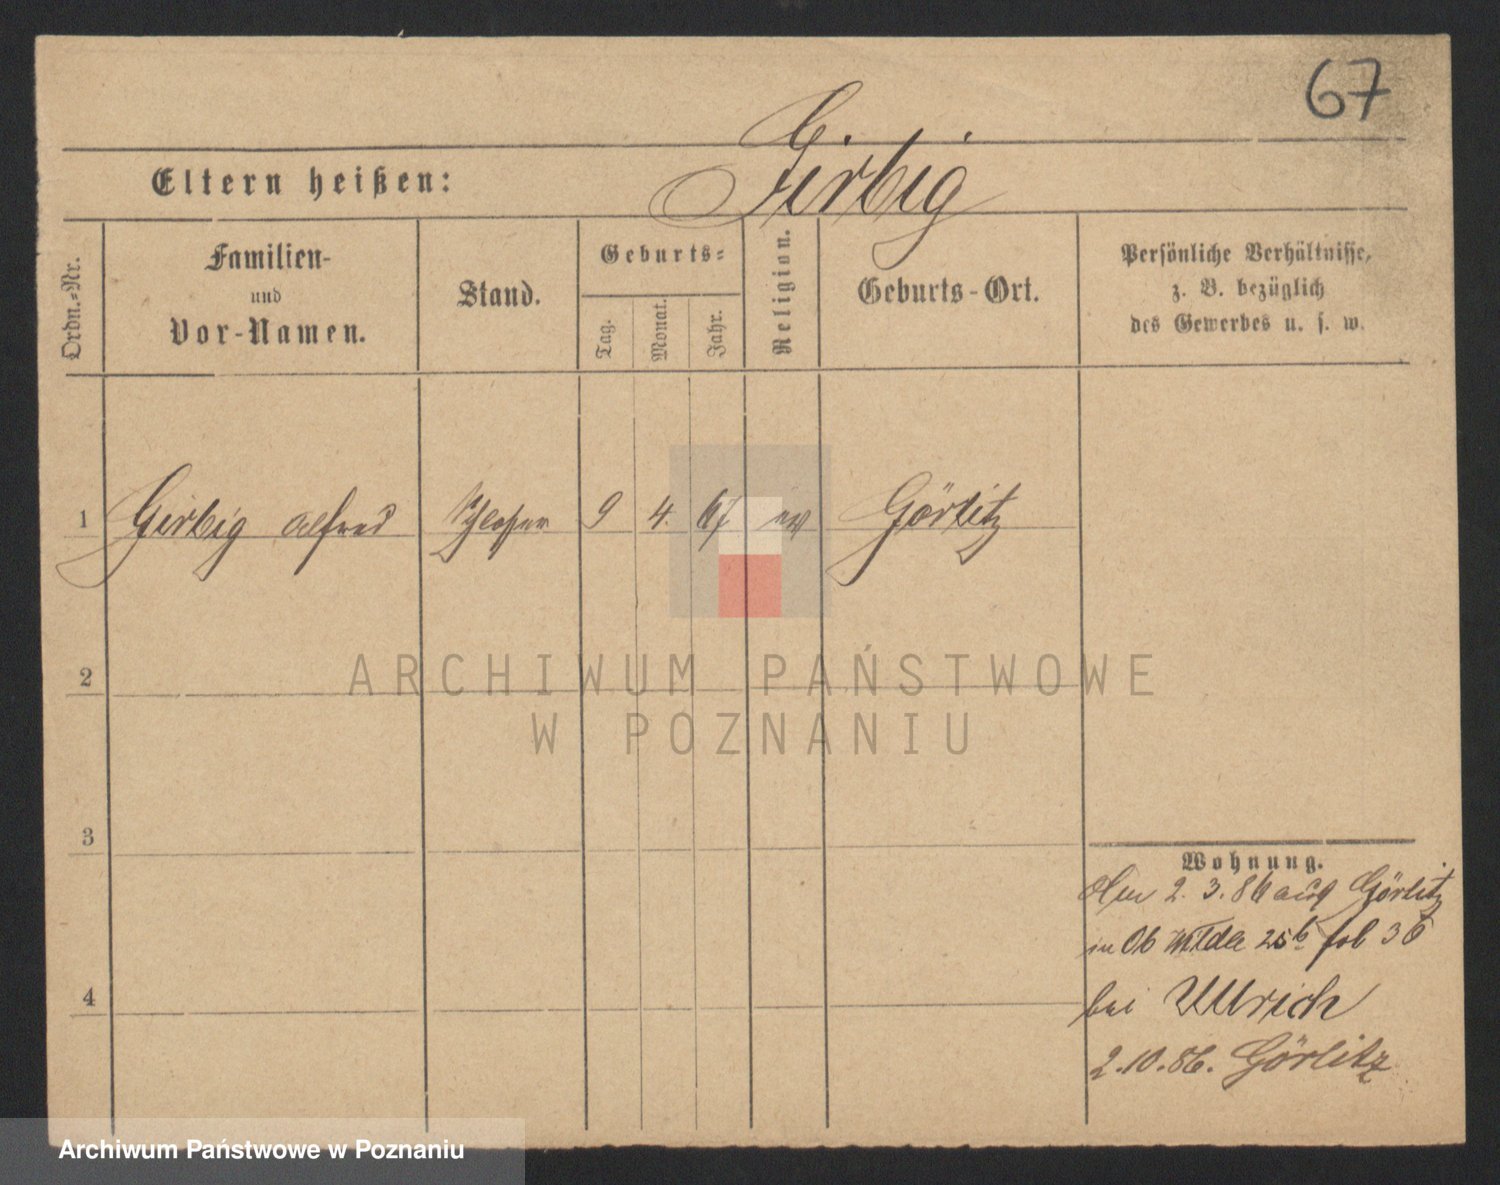 67
Girbig
Eltern heißen:
Ordn.-Nr.
Familien-
und
Vor-Namen.
Stand.
Geburts-
Tag.
Monat.
Jahr.
Religion.
Geburts-Ort.
Persönliche Verhältnisse,
z. B. bezüglich
des Gewerbes u. s. w.
1 Girbig Alfred Schlosser 9 4. 67 ev Görlitz
2
3
4
Wohnung.
2. 3. 86 aus Görlitz
in Ob Wilda 25b fol 36
bei Ullrich
2.10.86. Görlitz
ARCHIWUM PAŃSTWOWE
W POZNANIU
Archiwum Państwowe w Poznaniu